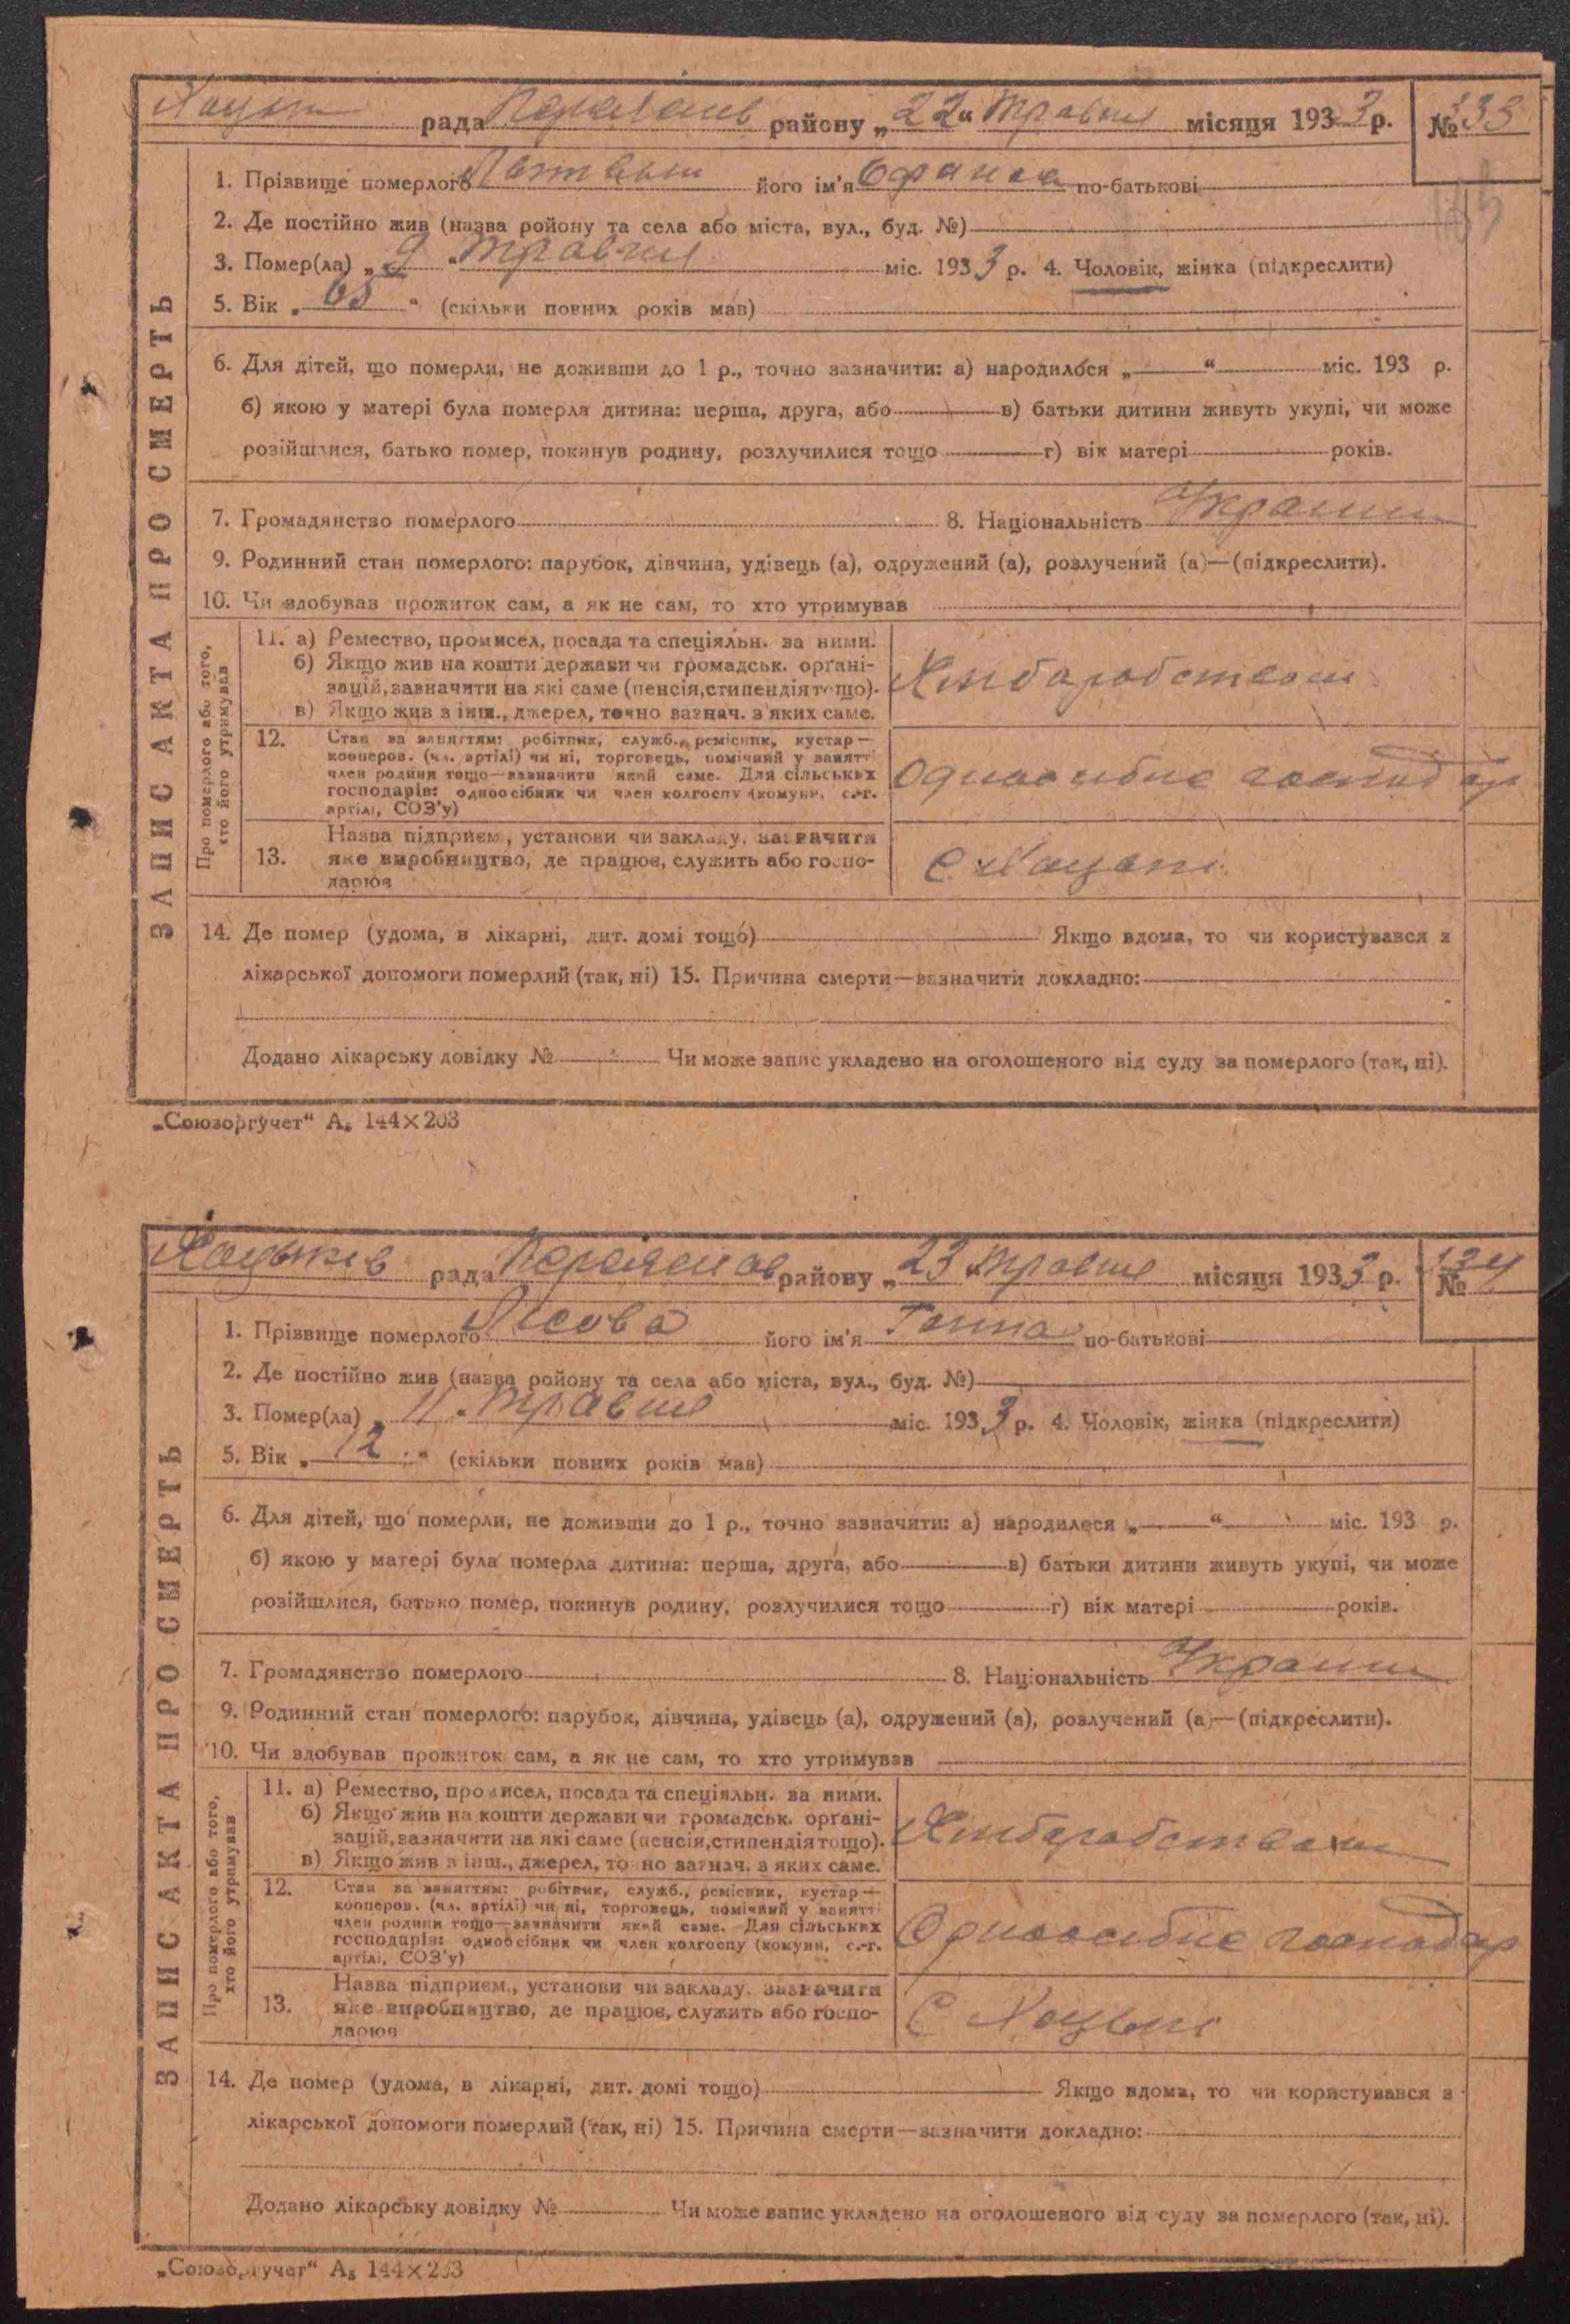 рада районy „22“ Травня місяця 1933 р. № 333
1. Прізвище померлого його ім'я по-батькові
2. Де постійно жив (назва ройону та села або міста, вул., буд. №)
3. Помер(ла) „9“ Травня міс. 1933 р. 4. Чоловік, жінка (підкреслити)
5. Вік „65“ (скільки повних років мав)
6. Для дітей, що померли, не доживши до 1 р., точно зазначити: а) народилося „ “ міс. 193 р.
б) якою у матері була померла дитина: перша, друга, або в) батьки дитини живуть укупі, чи може
розійшлися, батько помер, покинув родину, розлучилися тощо г) вік матері років.
7. Громадянство померлого 8. Національність Україн
9. Родинний стан померлого: парубок, дівчина, удівець (а), одружений (а), розлучений (а)—(підкреслити).
10. Чи здобував прожиток сам, а як не сам, то хто утримував
ЗАПИС АКТА ПРО СМЕРТЬ
Про померлого або того, хто його утримував
11. а) Ремество, промисел, посада та спеціяльн. за ними.
б) Якщо жив на кошти держави чи громадськ. орґані-
зацій, зазначити на які саме (пенсія, стипендія тощо).
в) Якщо жив з інш., джерел, точно зазнач. з яких саме.
Хліборобством
12. Стан за заняттям: робітник, служб., ремісник, кустар —
кооперов. (чл. артілі) чи ні, торговець, помічний у занятті
член родини тощо—зазначити який саме. Для сільських
господарів: одноосібник чи член колгоспу (комуни, с.-г.
артілі, СОЗ'у)
Одноосібне господар
13. Назва підприєм., установи чи закладу, зазначити
яке виробництво, де працює, служить або госпо-
дарює
С Хоцьки
14. Де помер (удома, в лікарні, дит. домі тощо) Якщо вдома, то чи користувався з
лікарської допомоги померлий (так, ні) 15. Причина смерти—зазначити докладно:
Додано лікарську довідку № Чи може запис укладено на оголошеного від суду за померлого (так, ні).
„Союзоргучет“ А₅ 144×203
Хоцьків рада Переяслав району „23“ Травня місяця 1933 р. № 134
1. Прізвище померлого Лісова його ім'я Ганна по-батькові
2. Де постійно жив (назва ройону та села або міста, вул., буд. №)
3. Помер(ла) „11“ Травня міс. 1933 р. 4. Чоловік, жінка (підкреслити)
5. Вік „12“ (скільки повних років мав)
6. Для дітей, що померли, не доживши до 1 р., точно зазначити: а) народилося „ “ міс. 193 р.
б) якою у матері була померла дитина: перша, друга, або в) батьки дитини живуть укупі, чи може
розійшлися, батько помер, покинув родину, розлучилися тощо г) вік матері років.
7. Громадянство померлого 8. Національність Україн
9. Родинний стан померлого: парубок, дівчина, удівець (а), одружений (а), розлучений (а)—(підкреслити).
10. Чи здобував прожиток сам, а як не сам, то хто утримував
ЗАПИС АКТА ПРО СМЕРТЬ
Про померлого або того, хто його утримував
11. а) Ремество, промисел, посада та спеціяльн. за ними.
б) Якщо жив на кошти держави чи громадськ. орґані-
зацій, зазначити на які саме (пенсія, стипендія тощо).
в) Якщо жив з інш., джерел, точно зазнач. з яких саме.
Хліборобством
12. Стан за заняттям: робітник, служб., ремісник, кустар —
кооперов. (чл. артілі) чи ні, торговець, помічний у занятті
член родини тощо—зазначити який саме. Для сільських
господарів: одноосібник чи член колгоспу (комуни, с.-г.
артілі, СОЗ'у)
Одноосібне господар
13. Назва підприєм., установи чи закладу, зазначити
яке виробництво, де працює, служить або госпо-
дарює
С Хоцьки
14. Де помер (удома, в лікарні, дит. домі тощо) Якщо вдома, то чи користувався з
лікарської допомоги померлий (так, ні) 15. Причина смерти—зазначити докладно:
Додано лікарську довідку № Чи може запис укладено на оголошеного від суду за померлого (так, ні).
„Союзоргучет“ А₅ 144×203